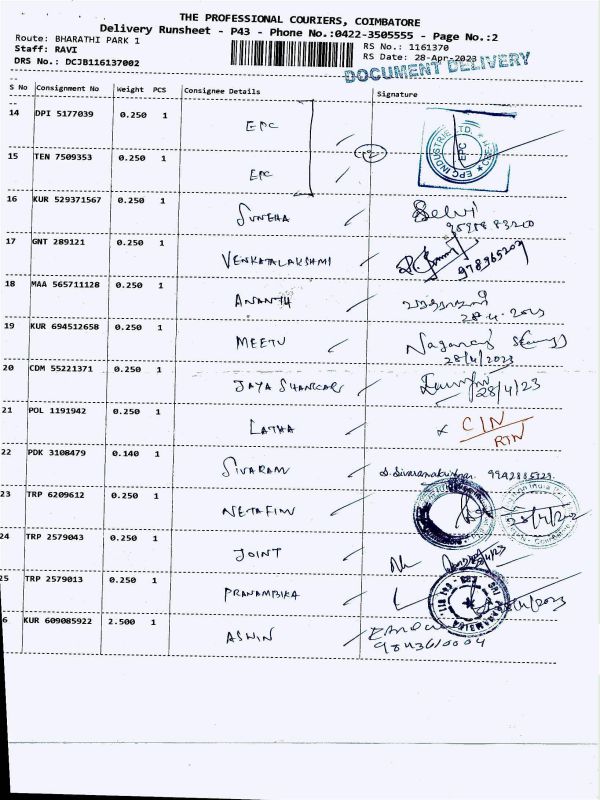 THE PROFESSIONAL COURIERS, COIMBATORE
Delivery Runsheet - P43 - Phone No.:0422-3505555 - Page No.:2
Route: BHARATHI PARK 1
RS No.: 1161370
Staff: RAVI
RS Date: 28-Apr-2023
DRS No.: DCJB116137002
DOCUMENT DELIVERY
S No Consignment No Weight PCS Consignee Details Signature
14 DPI 5177039 0.250 1 EPC
EPC INDUSTRIE LTD. EPC
15 TEN 7509353 0.250 1 EPC 2
16 KUR 529371567 0.250 1 SUNEHA Selvi
17 GNT 289121 0.250 1 VENKATALAKSHMI 978965209
18 MAA 565711128 0.250 1 ANANTH
28.4.2023
19 KUR 694512658 0.250 1 MEETU Nagaraj
28/4/2023
20 CDM 55221371 0.250 1 JAYA SHANKARI 28/4/23
21 POL 1191942 0.250 1 LATHA CIN
RTN
22 PDK 3108479 0.140 1 SIVARAM S. Sivaramakrishnan
23 TRP 6209612 0.250 1 NETAFIM
24 TRP 2579043 0.250 1 JOINT
25 TRP 2579013 0.250 1 PRANAMBIKA
6 KUR 609085922 2.500 1 ASWIN
9843610004